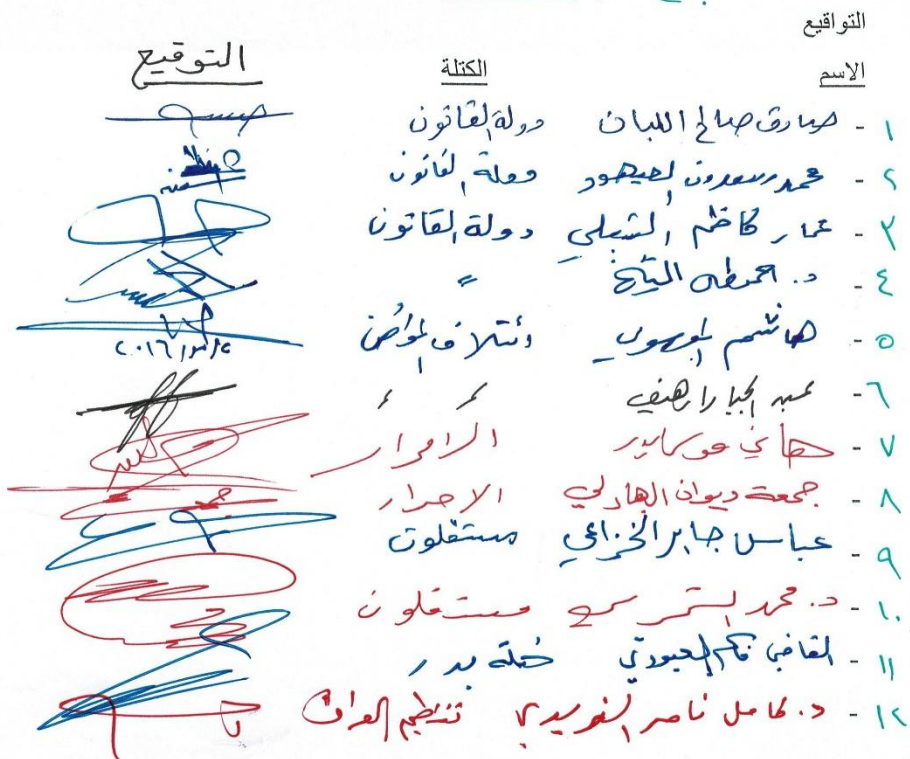 التواقيع
الاسم الكتلة التوقيع
١ - صادق صالح اللبان دولة القانون
٢ - محمد سعدون الصيهود دولة القانون
٣ - عمار كاظم الشبلي دولة القانون
٤ - د. احمد طه الشيخ "
٥ - هاشم الموسوي ائتلاف المواطن
٦ - عبد الجبار رهيف
٧ - هاني موسى بدر الاحرار
٨ - جمعة ديوان البهادلي الاحرار
٩ - عباس جابر الخزاعي مستقلون
١٠ - د. محمد الشمري مستقلون
١١ - القاضي العبودي كتلة بدر
١٢ - د. كامل ناصر